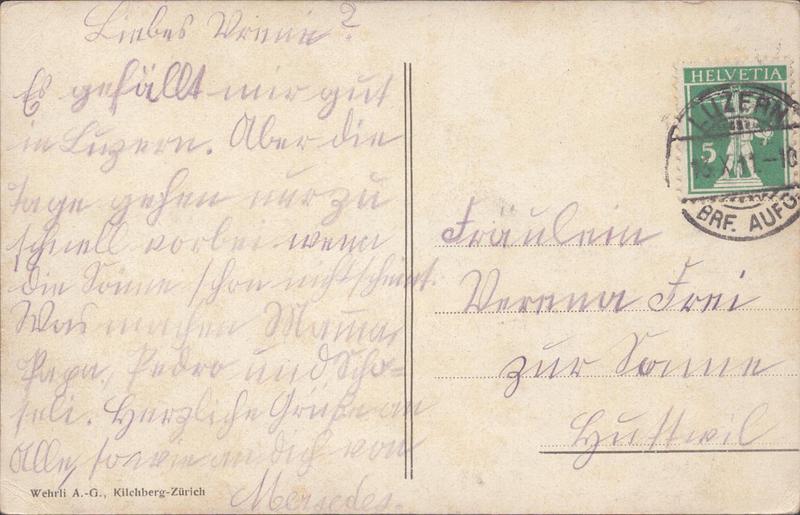 Liebes Vreni?
Es gefällt mir gut
in Luzern. Aber die
tage gehen nur zu
schnell vorbei wenn
die Sonne schon nicht scheint.
Was machen Mama,
Papa, Pedro und Scho-
seli. Herzliche Grüße an
Alle, sowie an dich von
Mersedes.
Wehrli A.-G., Kilchberg-Zürich
HELVETIA
5
LUZERN
BRF. AUFG.
Fräulein
Verena Frei
zur Sonne
Huttwil